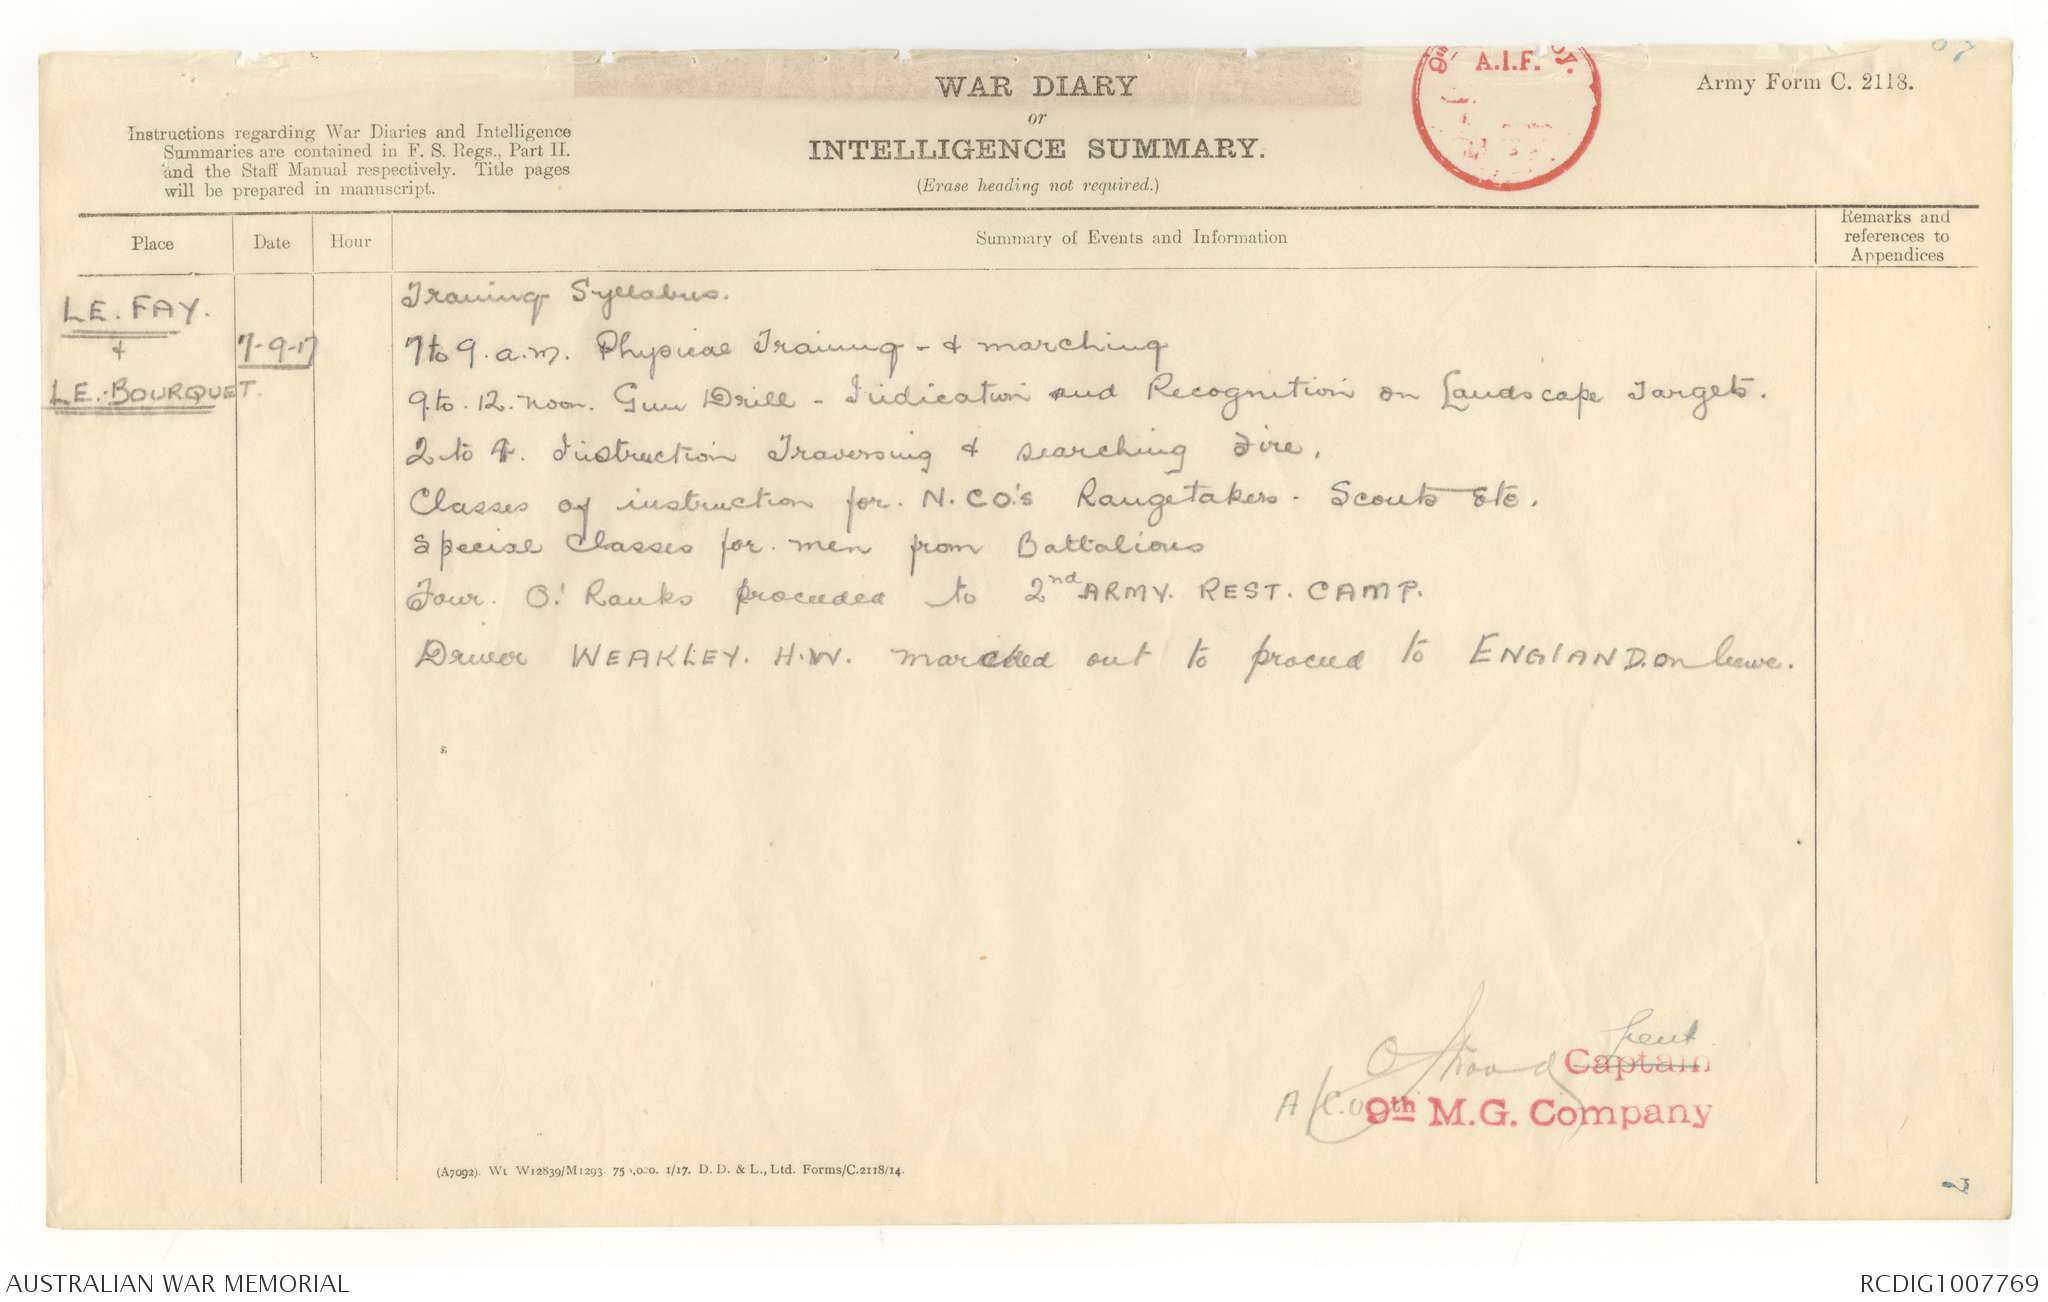 WAR DIARY
or
INTELLIGENCE SUMMARY.
(Erase heading not required.)
Army Form C. 2118.
A.I.F.
Instructions regarding War Diaries and Intelligence
Summaries are contained in F. S. Regs., Part II.
and the Staff Manual respectively. Title pages
will be prepared in manuscript.
Place
Date
Hour
Summary of Events and Information
Remarks and
references to
Appendices
LE. FAY.
&
LE. BOURQUET.
7-9-17
Training Syllabus.
7 to 9. a.m. Physical Training - & marching
9 to. 12. noon. Gun Drill - Indication and Recognition on Landscape Targets.
2 to 4. Instruction Traversing & searching Fire.
Classes of instruction for. N.CO's Rangetakers. Scouts Etc.
Special Classes for. men from Battalions
Four. O.' Ranks proceeded to 2nd ARMY. REST. CAMP.
Driver WEAKLEY. H.W. marched out to proceed to ENGLAND. on leave.
Lieut
Captain
A/C.O.
9th M.G. Company
(A7092). Wt W12839/M1293. 75 ,000. 1/17. D. D. & L., Ltd. Forms/C.2118/14.
7
AUSTRALIAN WAR MEMORIAL
RCDIG1007769